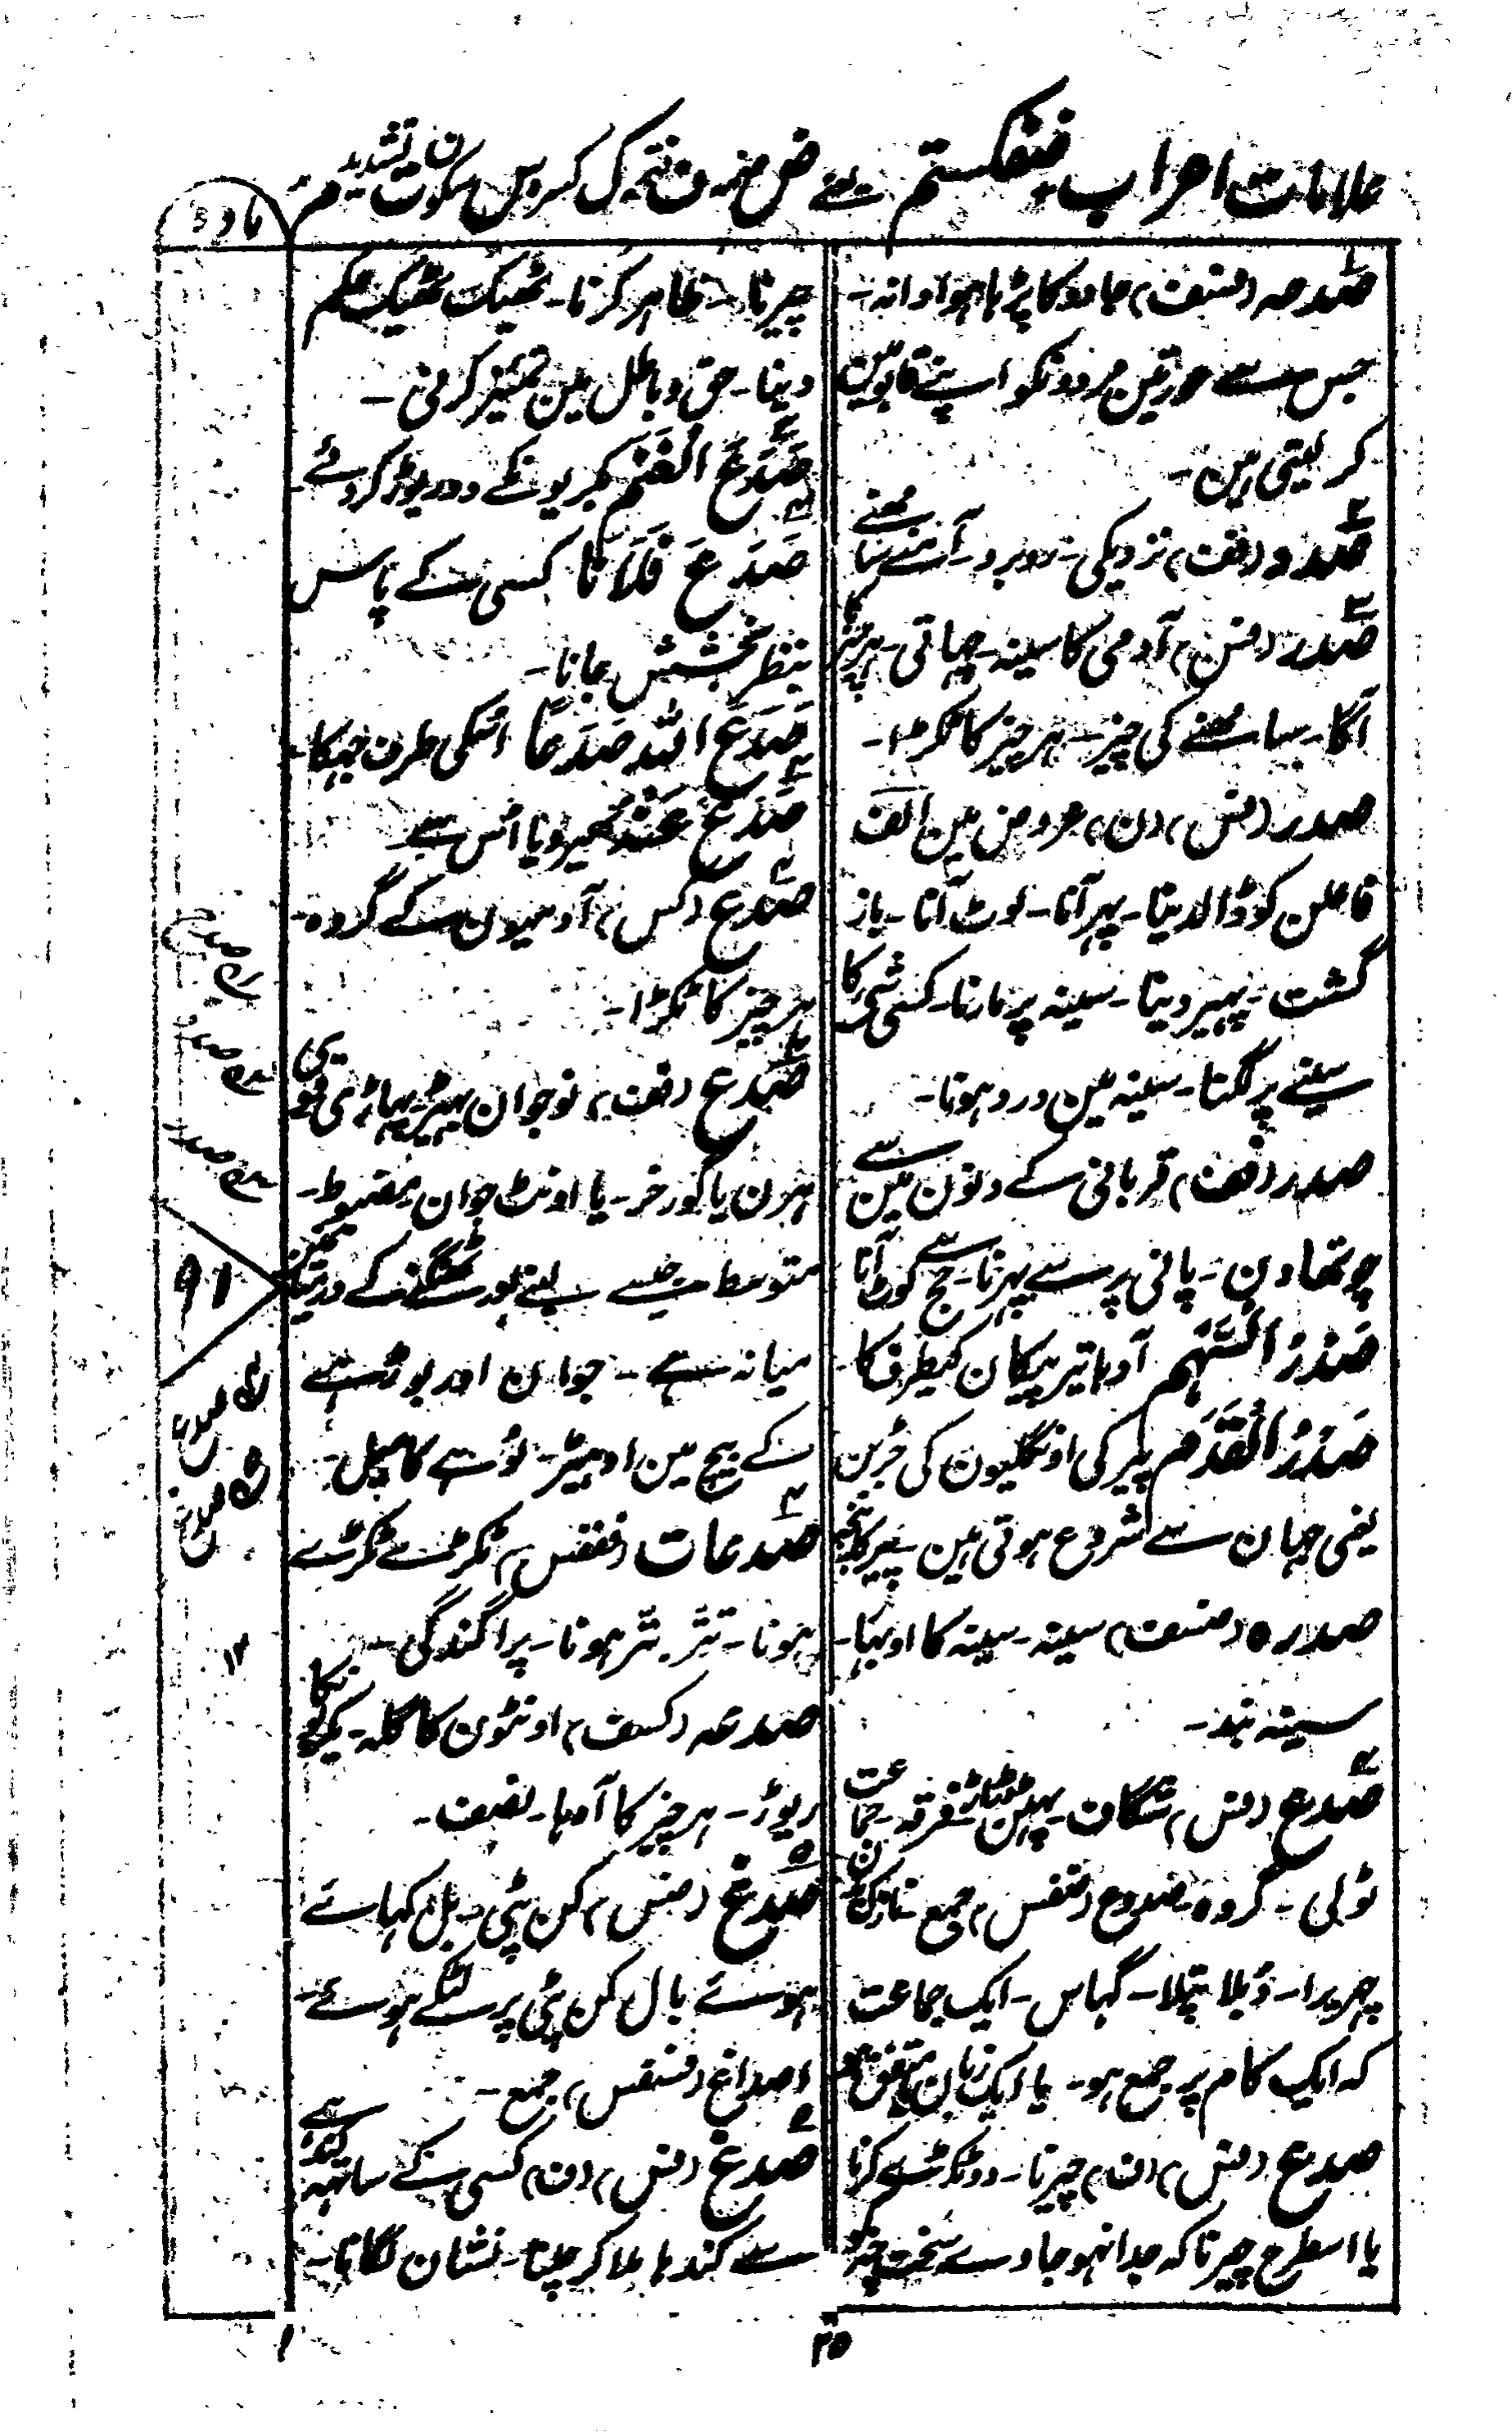 علامات اعراب ضفکستم یعنے ض ضمہ ف فتحہ ک کسرہ س سکون ت تشدید م
مادہ
صدحہ (فسف) جادو کا پڑہا ہوا دانہ۔
جس سے عورتین مردونکو اپنے قابو مین
کر لیتی ہین۔
صدد (فف) نزدیکی۔ روبرو۔ آمنے سامنے
صدر (فس) آدمی کا سینہ۔ چہاتی۔ ہر چیز کا
آگا۔ سامنے کی چیز۔ ہر چیز کا ٹکڑا۔
صدر (فس، ن) عروض مین الف
فاعلن کو ڈالدینا۔ پہر آنا۔ لوٹ آنا۔ باز
گشت۔ پہیر دینا۔ سینہ پر مارنا۔ کسی شی کا
سینے پر لگنا۔ سینہ مین درد ہونا۔
صدر (فف) قربانی کے دنون مین سے
چوتھا دن۔ پانی پر سے پہرنا۔ حج سے لوٹ آنا
صَدْرُ السَّهْم آدہا تیر پیکان کیطرف کا۔
صَدْرُ القَدَم پیر کی اونگلیون کی جڑین
یعنی جہان سے شروع ہوتی ہین۔ پیر کا پنجہ
صدرہ (ضسف) سینہ۔ سینہ کا اوبہار۔
سینہ بند۔
صدع (فس) شگاف۔ پہٹن۔ فرقہ۔ جماعت
ٹولی۔ گروہ۔ صدوع (ضضس) جمع۔ نازک
چہریرا۔ دُبلا پتلا۔ گہاس۔ ایک جماعت
کہ ایک کام پر جمع ہو۔ یا ایک زبان متفق ہو
صدع (فس، ف) چیرنا۔ دو ٹکڑے کرنا
یا اسطرح چیرنا کہ جدا نہو جاوے سخت چیز کو
چیرنا۔ ظاہر کرنا۔ ٹھیک ٹھیک حکم
دینا۔ حق و باطل مین تمیز کرنی۔
صَدَعَ الغَنَم بکریونکے دو ریوڑ کر دئے
صَدَعَ فُلَانًا کسی کے پاس
بنظر بخشش جانا۔
صَدَعَ اللہ صَدَعًا اسکی طرف جہکا
صَدَعَ عَنْهُ پھیر دیا اس سے
صدع (کس) آدمیون کے گروہ۔
ہر چیز کا ٹکڑا۔
صدع (فف) نوجوان بہیڑ۔ پہاڑی قوی
ہرن یا گورخر۔ یا اونٹ جوان مضبوط۔
متوسط جیسے لنبے اور ٹھگنے کے درمیان
میانہ ہے۔ جوان اور بوڑہے
کے بیچ مین ادہیڑ۔ لوہے کا میل۔
صدعات (ففس) ٹکڑے ٹکڑے
ہونا۔ تتّر بتّر ہونا۔ پراگندگی۔
صدعہ (کسف) اونٹون کا گلہ۔ بکریونکا
ریوڑ۔ ہر چیز کا آدہا۔ نصف۔
صدغ (ضس) کن پٹی۔ بل کہائے
ہوئے بال کن پٹی پر لٹکے ہوئے۔
اصداغ (فسفس) جمع۔
صدغ (فس، ن) کسی کے ساتھ کندہے
سے کندہا ملا کر چلنا۔ نشان لگانا۔
صدح
صدد
صدر
۹۱
صدع
صدغ
۱۲
۲۵
۱